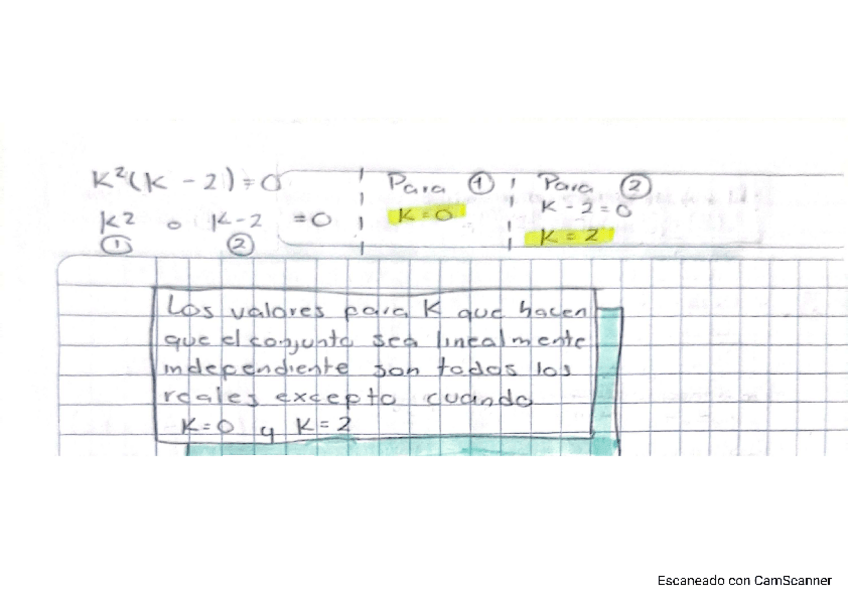 K²(K - 2) = 0
K² o K-2 = 0
① ②
Para ①
K = 0
Para ②
K - 2 = 0
K = 2
Los valores para K que hacen
que el conjunto sea linealmente
independiente son todos los
reales excepto cuando
K = 0 y K = 2
Escaneado con CamScanner